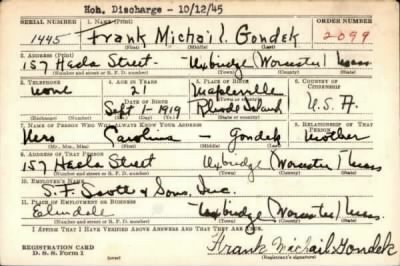 Hon. Discharge - 10/12/45
SERIAL NUMBER 1. NAME (Print) ORDER NUMBER
1445 Frank Michail Gondek 2099
2. ADDRESS (Print)
157 Hecla Street - Uxbridge (Worcester) Mass.
(Number and street or R. F. D. number) (Town) (County) (State)
3. TELEPHONE 4. AGE IN YEARS 5. PLACE OF BIRTH 6. COUNTRY OF CITIZENSHIP
None 21 Mapleville
DATE OF BIRTH
Sept 1- 1919 Rhode Island U. S. A.
7. NAME OF PERSON WHO WILL ALWAYS KNOW YOUR ADDRESS 8. RELATIONSHIP OF THAT PERSON
Mrs Carolina - Gondek Mother
(Mr., Mrs., Miss) (First) (Middle) (Last)
9. ADDRESS OF THAT PERSON
157 Hecla Street Uxbridge (Worcester) Mass
(Number and street or R. F. D. number) (Town) (County) (State)
10. EMPLOYER'S NAME
S. F. Scott & Sons. Inc.
11. PLACE OF EMPLOYMENT OR BUSINESS
Elmdale - Uxbridge (Worcester) Mass.
(Number and street or R. F. D. number) (Town) (County) (State)
I AFFIRM THAT I HAVE VERIFIED ABOVE ANSWERS AND THAT THEY ARE TRUE.
REGISTRATION CARD
D. S. S. Form 1 (over) Frank Michail Gondek
(Registrant's signature)